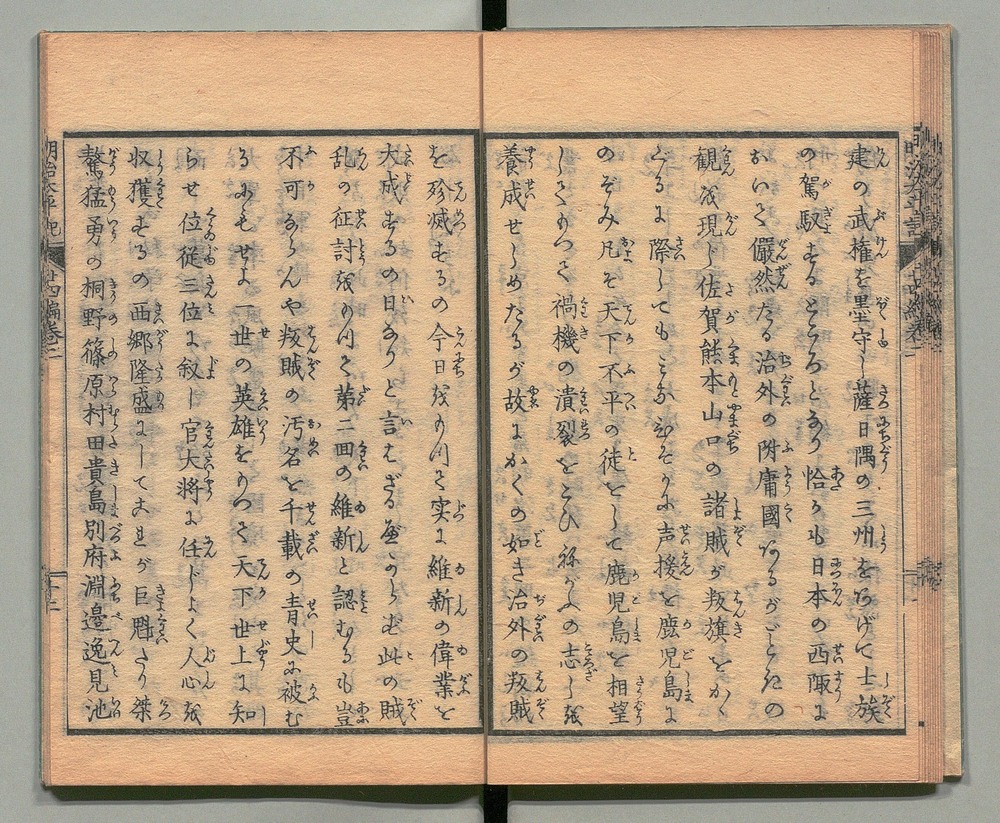 建の武権を墨守し薩日隅の三州をあげて士族
の駕馭するところとあり恰かも日本の西陬に
おいて儼然たる治外の附庸國あるがごときの
観を現し佐賀熊本山口の諸賊が叛旗をかゝ
ぐるに際してもみなひそかに声援を鹿児島に
のぞみ凡そ天下不平の徒として鹿児島を相望
禍機の潰裂を の志しを
養成せしめたるが故にかくの如き治外の叛賊
を殄滅するの今日をもつて実に維新の偉業を
大成するの日なりと言はざるべからず此の賊
乱の征討をもつて第二回の維新と認むるも豈
不可ならんや叛賊の汚名を千載の青史に被む
るにもせよ一世の英雄をもつて天下世上に知
らせ位従三位に叙し官大将に任じよく人心を
収獲するの西郷隆盛にしてこれが巨魁たり桀
驁猛勇の桐野篠原村田貴島別府淵邉逸見池
明治太平記 廿四編巻二